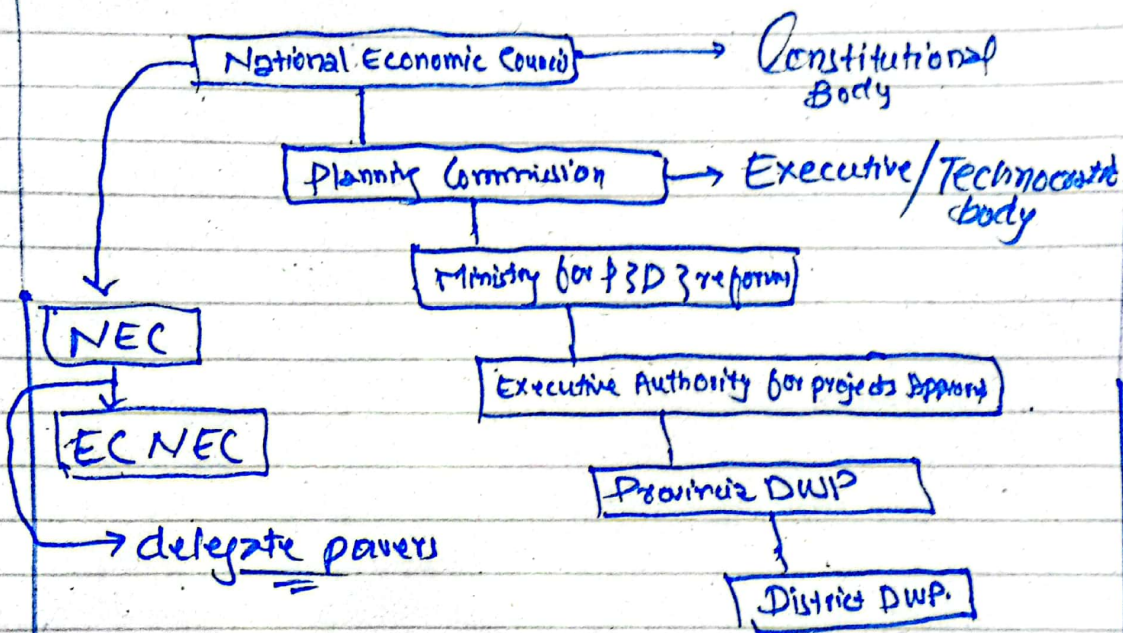 National Economic Council
Constitutional
Body
Planning Commission
Executive/Technocratic
body
Ministry for P & D & reforms
NEC
Executive Authority for projects Approval
EC NEC
Provincial DWP
delegate powers
District DWP.